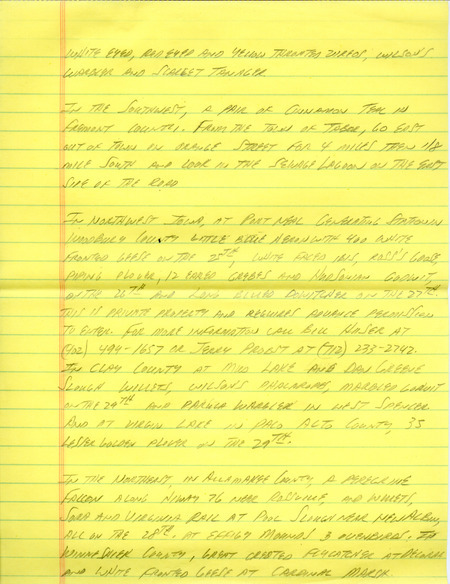 WHITE EYED, RED EYED AND YELLOW THROATED VIREOS, WILSON'S
WARBLER AND SCARLET TANAGER
IN THE SOUTHWEST, A PAIR OF CINNAMON TEAL IN
FREMONT COUNTY. FROM THE TOWN OF TABOR, GO EAST
OUT OF TOWN ON ORANGE STREET FOR 4 MILES THEN 1/8
MILE SOUTH AND LOOK IN THE SEWAGE LAGOON ON THE EAST
SIDE OF THE ROAD
IN NORTHWEST IOWA, AT PORT NEAL GENERATING STATION IN
WOODBURY COUNTY LITTLE BLUE HERON WITH 400 WHITE
FRONTED GEESE ON THE 25TH, WHITE FACED IBIS, ROSS'S GOOSE,
PIPING PLOVER, 12 EARED GREBES AND HUDSONIAN GODWIT,
ON THE 26TH AND LONG BILLED DOWITCHER ON THE 27TH.
THIS IS PRIVATE PROPERTY AND REQUIRES ADVANCE PERMISSION
TO ENTER. FOR MORE INFORMATION CALL BILL HUSER AT
(712) 494-1657 OR JERRY PROBST AT (712) 233-2742.
IN CLAY COUNTY AT MUD LAKE AND DAN GREENE
SLOUGH WILLETS, WILSON'S PHALAROPE, MARBLED GODWIT
ON THE 29TH AND PARULA WARBLER IN WEST SPENCER
AND AT VIRGIN LAKE IN PALO ALTO COUNTY, 35
LESSER GOLDEN PLOVER ON THE 29TH.
IN THE NORTHEAST, IN ALLAMAKEE COUNTY, A PEREGRINE
FALCON ALONG HIWAY 76 NEAR ROSSVILLE, AND WILLETS,
SORA AND VIRGINIA RAIL AT POOL SLOUGH NEAR NEW ALBIN,
ALL ON THE 28TH. AT EFFIGY MOUNDS 3 OVENBIRDS. IN
WINNESHIEK COUNTY, GREAT CRESTED FLYCATCHER AT DECORAH
AND WHITE FRONTED GEESE AT CARDINAL MARSH